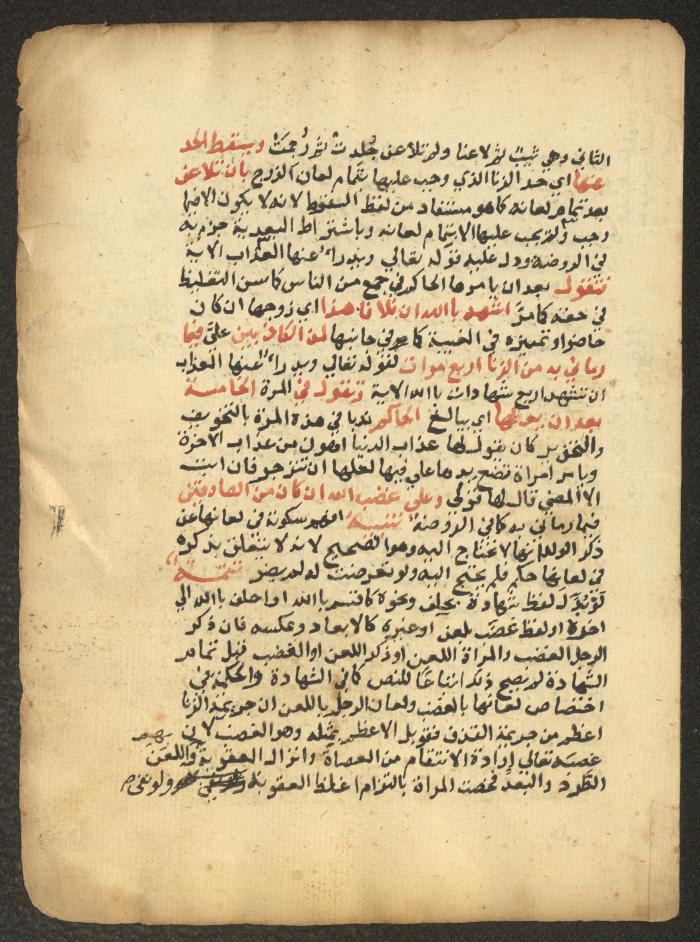 الثاني وهي ثيب ثم لاعنا ولم تلاعن جُلدت ثم رُجمت ويسقط الحد
عنها اي حد الزنا الذي وجب عليها بتمام لعان الزوج بان تلاعن
بعد تمام لعانه كما هو مستفاد من لفظ السقوط لانه لا يكون الا فيما
وجب ولم يجب عليها الا بتمام لعانه وباشتراط البعدية جزم به
في الروضة ودل عليه قوله تعالي ويدرا عنها العذاب الاية
فتقول بعد ان يامرها الحاكم في جمع من الناس كما سن التغليظ
في حقه كما مرَّ اشهد بالله ان فلانا هذا اي زوجها ان كان
حاضرا وتميزه في الغيبة كما في جانبها لمن الكاذبين عليَّ فيما
رماني به من الزنا اربع مرات لقوله تعالي ويدرا عنها العذاب
ان تشهد اربع شهادات بالله الاية وتقول في المرة الخامسة
بعد ان يعظها اي يبالغ الحاكم ندبا في هذه المرة بالتخويف
والتحذير كان يقول لها عذاب الدنيا اهون من عذاب الاخرة
ويامر امراة تضع يدها علي فيها لعلها ان تنزجر فان ابت
الا المضي قال لها قولي وعلي غضب الله ان كان من الصادقين
فيما رماني به كما في الروضة تنبيه افهم سكوته في لعانها عن
ذكر الولد انها لا تحتاج اليه وهو الصحيح لانه لا يتعلق بذكره
في لعانها حكم فلم يحتج اليه ولو تعرضت له لم يضر تتمة
لو بُدِّل لفظ شهادة بحلف ونحوه كاقسم بالله او احلف بالله الي
اخره او لفظ غضب بلعن او غيره كالابعاد وعكسه فان ذكر
الرجل الغضب والمراة اللعن او ذكر اللعن او الغضب قبل تمام
الشهادة لم يصح ذلك اتباعا للنص كما في الشهادة والحكمة في
اختصاص لعانها بالغضب ولعان الرجل باللعن ان جريمة الزنا
اعظم من جريمة القذف فقوبل الاعظم بمثله وهو الغضب لان
غضبه تعالي ارادة الانتقام من العصاة وانزال العقوبة بهم واللعن
الطرد والبعد فخصت المراة بالتزام اغلظ العقوبة ولو نفي